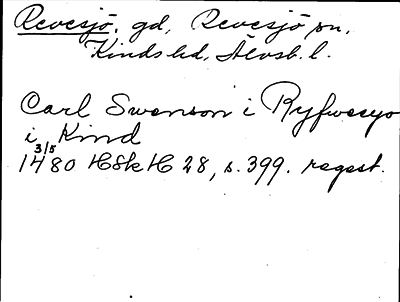 Revesjö, gd, Revesjö sn,
Kinds hd, Älvsb. l.
Carl Swenson i Ryfwesyo
i Kind
3/5
1480 HSkH 28, s. 399. regest.